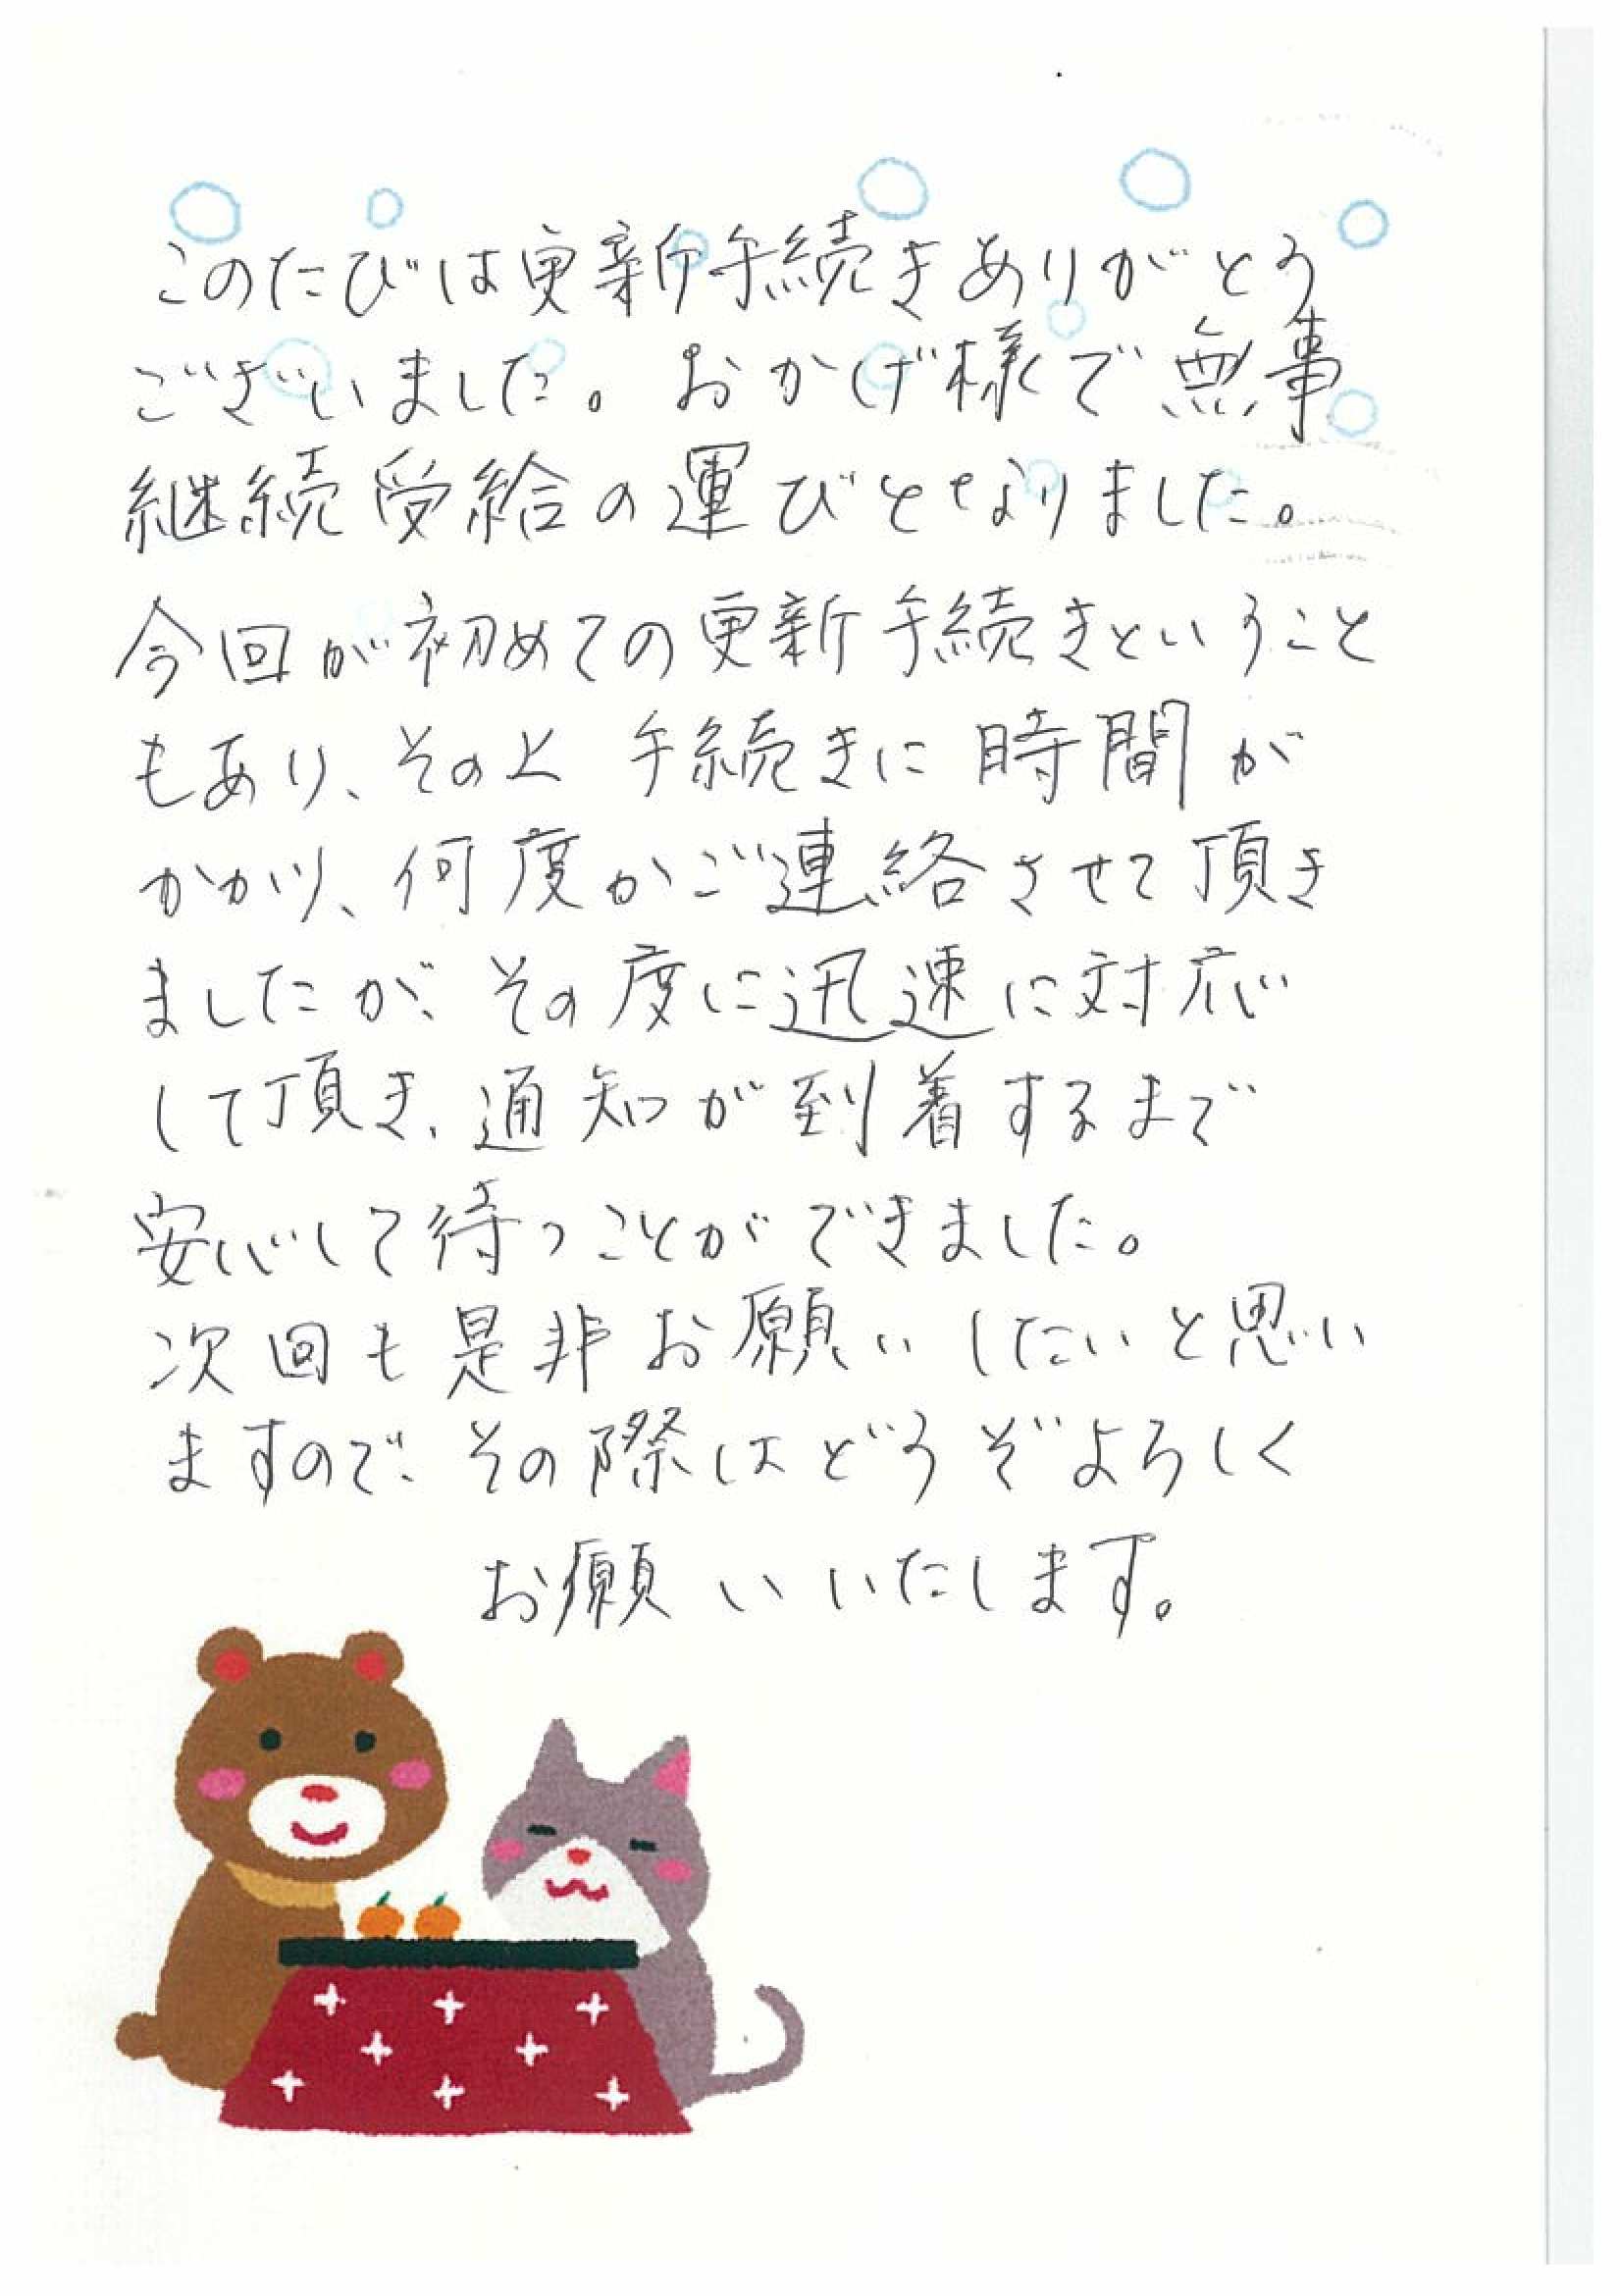 このたびは更新手続きありがとう
ございました。おかげ様で無事
継続受給の運びとなりました。
今回が初めての更新手続きということ
もあり、その上手続きに時間が
かかり、何度かご連絡させて頂き
ましたが、その度に迅速に対応
して頂き、通知が到着するまで
安心して待つことができました。
次回も是非お願いしたいと思い
ますので、その際はどうぞよろしく
お願いいたします。